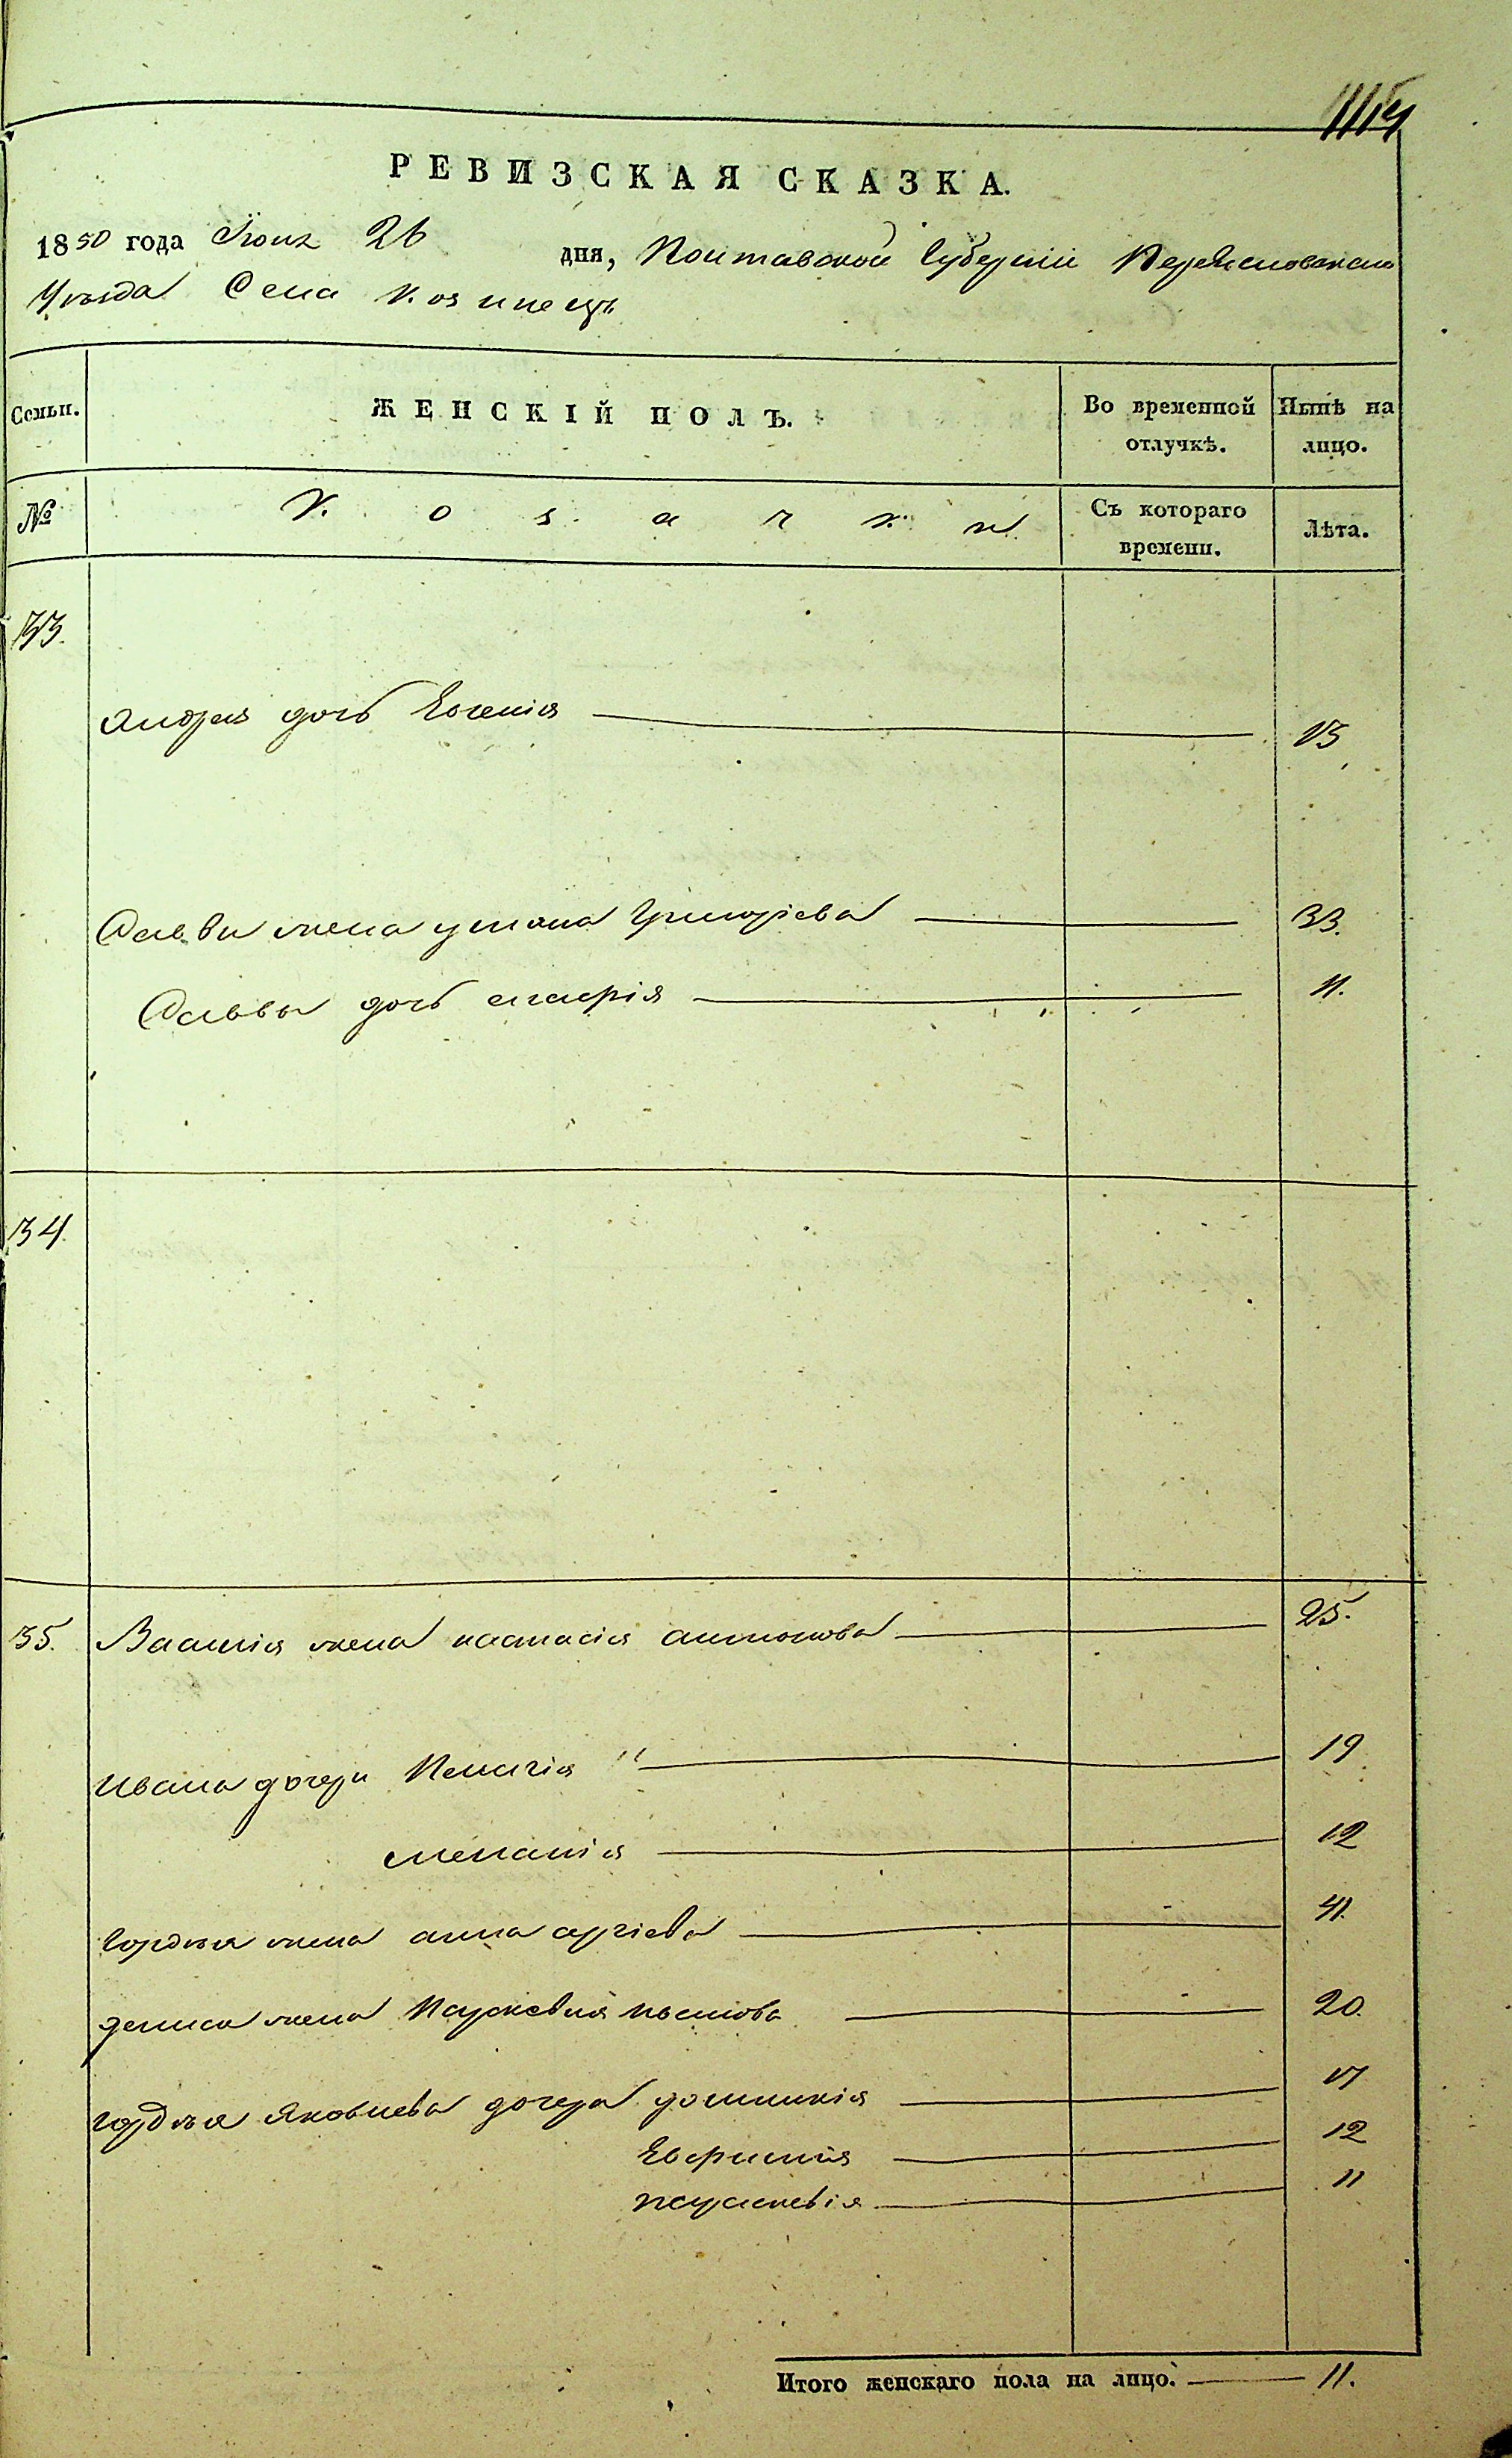 РЕВИЗСКАЯ СКАЗКА.
1850 года Іюня 26 дня, Полтавской Губерніи Переяславскаго
Уѣзда Села Козинецъ
Семьи. ЖЕНСКІЙ ПОЛЪ. Во временной отлучкѣ. Нынѣ на лицо.
№ Козачки Съ котораго времени. Лѣта.
33.
Андрея дочь Евгенія 13
Саввы жена Уляна Григоріева 33.
Саввы дочь Марія 11.
34.
35. Василія жена Настасія Антонова 25.
Ивана дочери Пелагія 19
Меланія 12
Гордѣя жена Анна Сергіева 41.
Дениса жена Параскевія 20.
Гордѣя Яковлева дочери Домникія 17
Евфимія 12
Параскевія 11
Итого женскаго пола на лицо. 11.